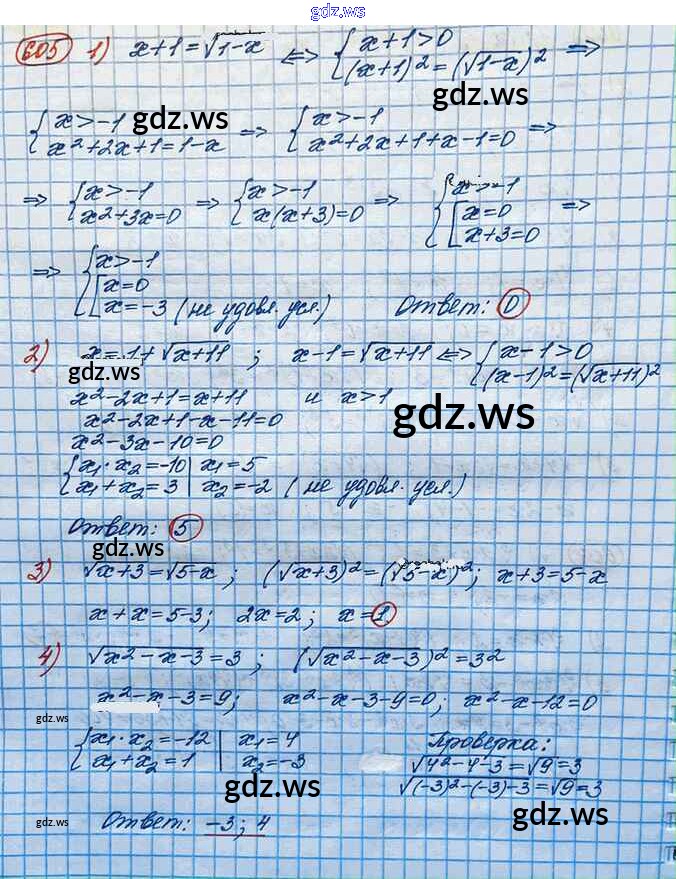 gdz.ws
605 1) x+1=√1-x ⇔ { x+1>0
(x+1)²=(√1-x)² ⇒
{ x>-1
x²+2x+1=1-x ⇒ { x>-1
x²+2x+1+x-1=0 ⇒
gdz.ws
gdz.ws
⇒ { x>-1
x²+3x=0 ⇒ { x>-1
x(x+3)=0 ⇒ { x>-1
[ x=0
x+3=0 ⇒
⇒ { x>-1
[ x=0
x=-3 (не удовл. усл.) Ответ: 0
2) x=1+√x+11 ; x-1=√x+11 ⇔ { x-1>0
(x-1)²=(√x+11)²
gdz.ws
x²-2x+1=x+11 и x>1
gdz.ws
x²-2x+1-x-11=0
x²-3x-10=0
{ x₁·x₂=-10 | x₁=5
x₁+x₂=3 | x₂=-2 (не удовл. усл.)
Ответ: 5
gdz.ws
gdz.ws
3) √x+3=√5-x ; (√x+3)²=(√5-x)²; x+3=5-x
x+x=5-3; 2x=2; x=1
4) √x²-x-3=3 ; (√x²-x-3)²=3²
x²-x-3=9; x²-x-3-9=0; x²-x-12=0
gdz.ws
{ x₁·x₂=-12 | x₁=4
x₁+x₂=1 | x₂=-3
Проверка:
√4²-4-3=√9=3
√(-3)²-(-3)-3=√9=3
gdz.ws
gdz.ws
gdz.ws
Ответ: -3; 4